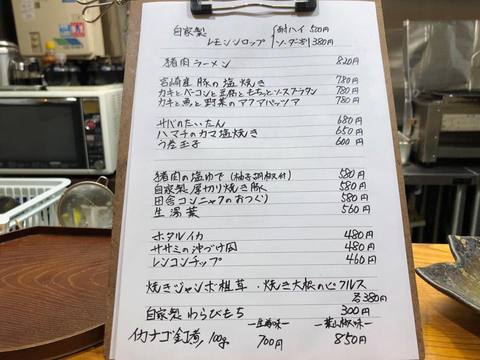 自家製
レモンシロップ
酎ハイ 500円
ソーダ割 380円
猪肉ラーメン 820円
宮崎産 豚の塩焼き 780円
カキとベーコンと豆腐ともちっとソースグラタン 780円
カキと魚と野菜のアクアパッツァ 780円
サバのたいたん 680円
ハマチのカマ塩焼き 650円
う巻玉子 600円
猪肉の塩ゆで (柚子胡椒付) 580円
自家製厚切り焼き豚 580円
田舎コンニャクのおつくり 580円
生湯葉 560円
ホタルイカ 480円
ササミの沖づけ風 480円
レンコンチップ 460円
焼きジャンボ椎茸・焼き大根のピクルス
各380円
自家製 わらびもち 300円
ー生姜味ー ー葉山椒味ー
イカナゴ釘煮/100g 700円 850円